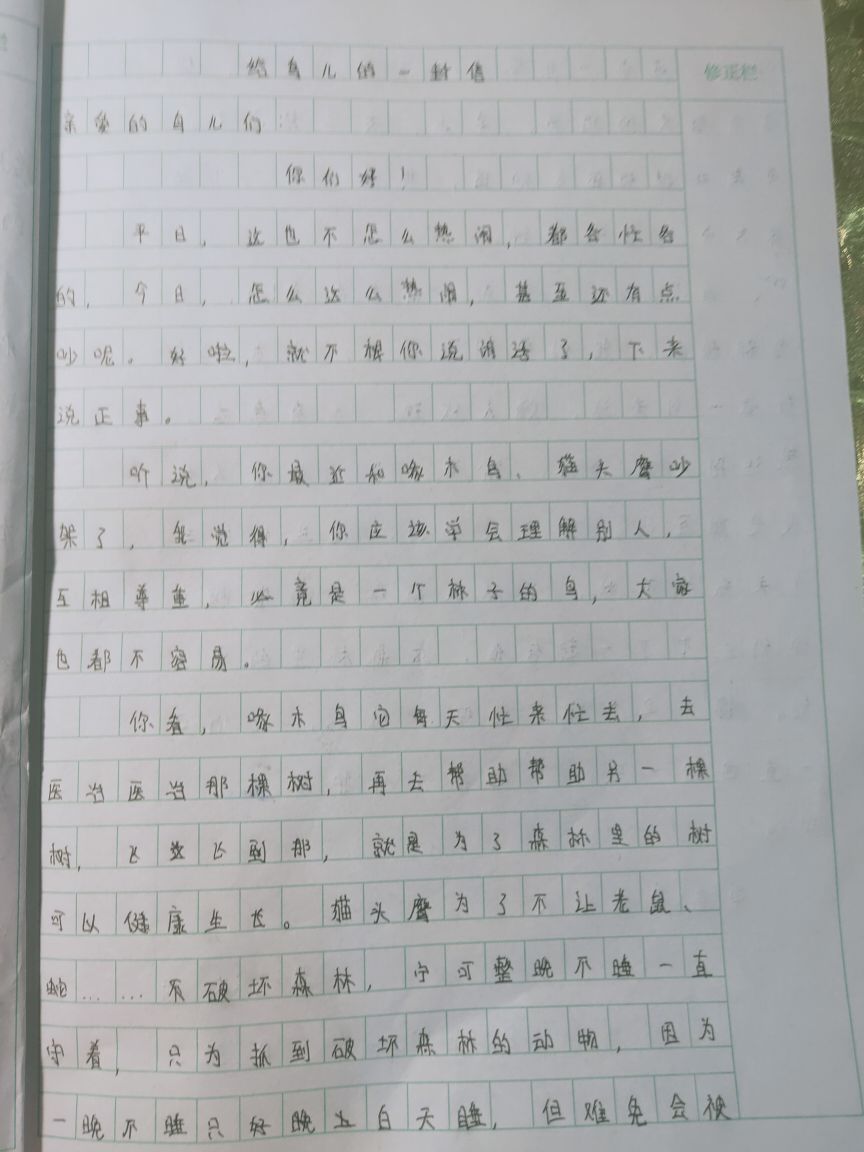 给鸟儿的一封信
修正栏
亲爱的鸟儿们:
你们好!
平日,这也不怎么热闹,都各忙各
的,今日,怎么这么热闹,甚至还有点
吵呢。好啦,就不和你说闲话了,下来
说正事。
听说,你最近和啄木鸟、猫头鹰吵
架了,我觉得,你应该学会理解别人,
互相尊重,必竟是一个林子的鸟,大家
也都不容易。
你看,啄木鸟它每天忙来忙去,去
医治医治那棵树,再去帮助帮助另一棵
树,飞这飞到那,就是为了森林里的树
可以健康生长。猫头鹰为了不让老鼠、
蛇……不破坏森林,宁可整晚不睡一直
守着,只为抓到破坏森林的动物,因为
一晚不睡只好晚上白天睡,但难免会被